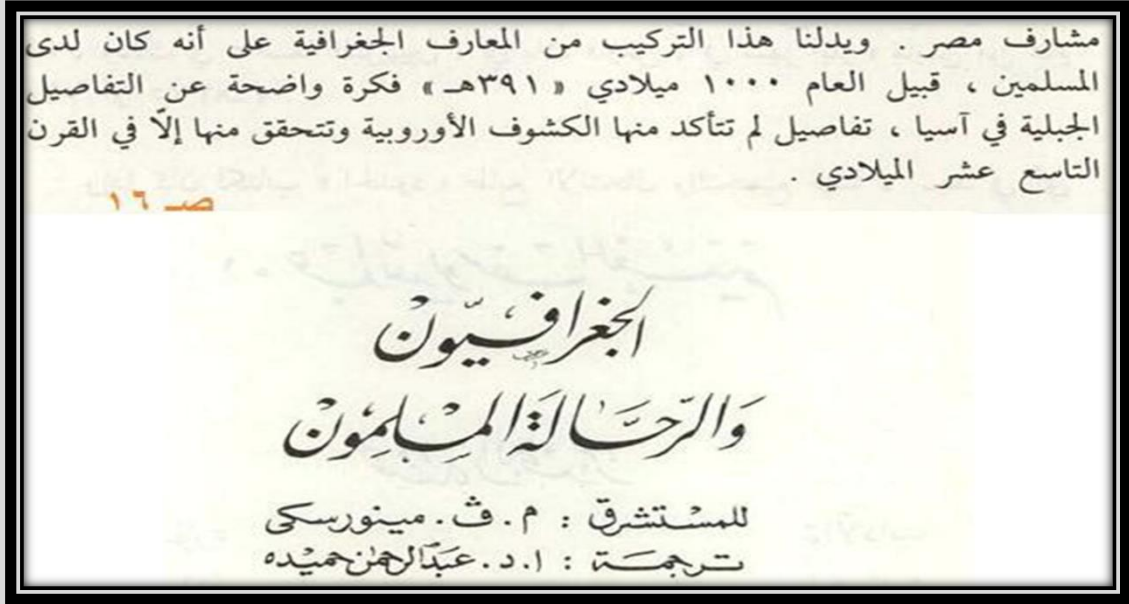 مشارف مصر . ويدلنا هذا التركيب من المعارف الجغرافية على أنه كان لدى
المسلمين ، قبيل العام ١٠٠٠ ميلادي « ٣٩١هـ » فكرة واضحة عن التفاصيل
الجبلية في آسيا ، تفاصيل لم تتأكد منها الكشوف الأوروبية وتتحقق منها إلّا في القرن
التاسع عشر الميلادي .
صـ ١٦
الجغرافيّون
وَالرّحَّالَةُ المُسْلِمُونْ
للمسْتشرق : م . ڤ . مينورسكى
ترجمة : ا . د . عبَدالرحمٰن حميْده